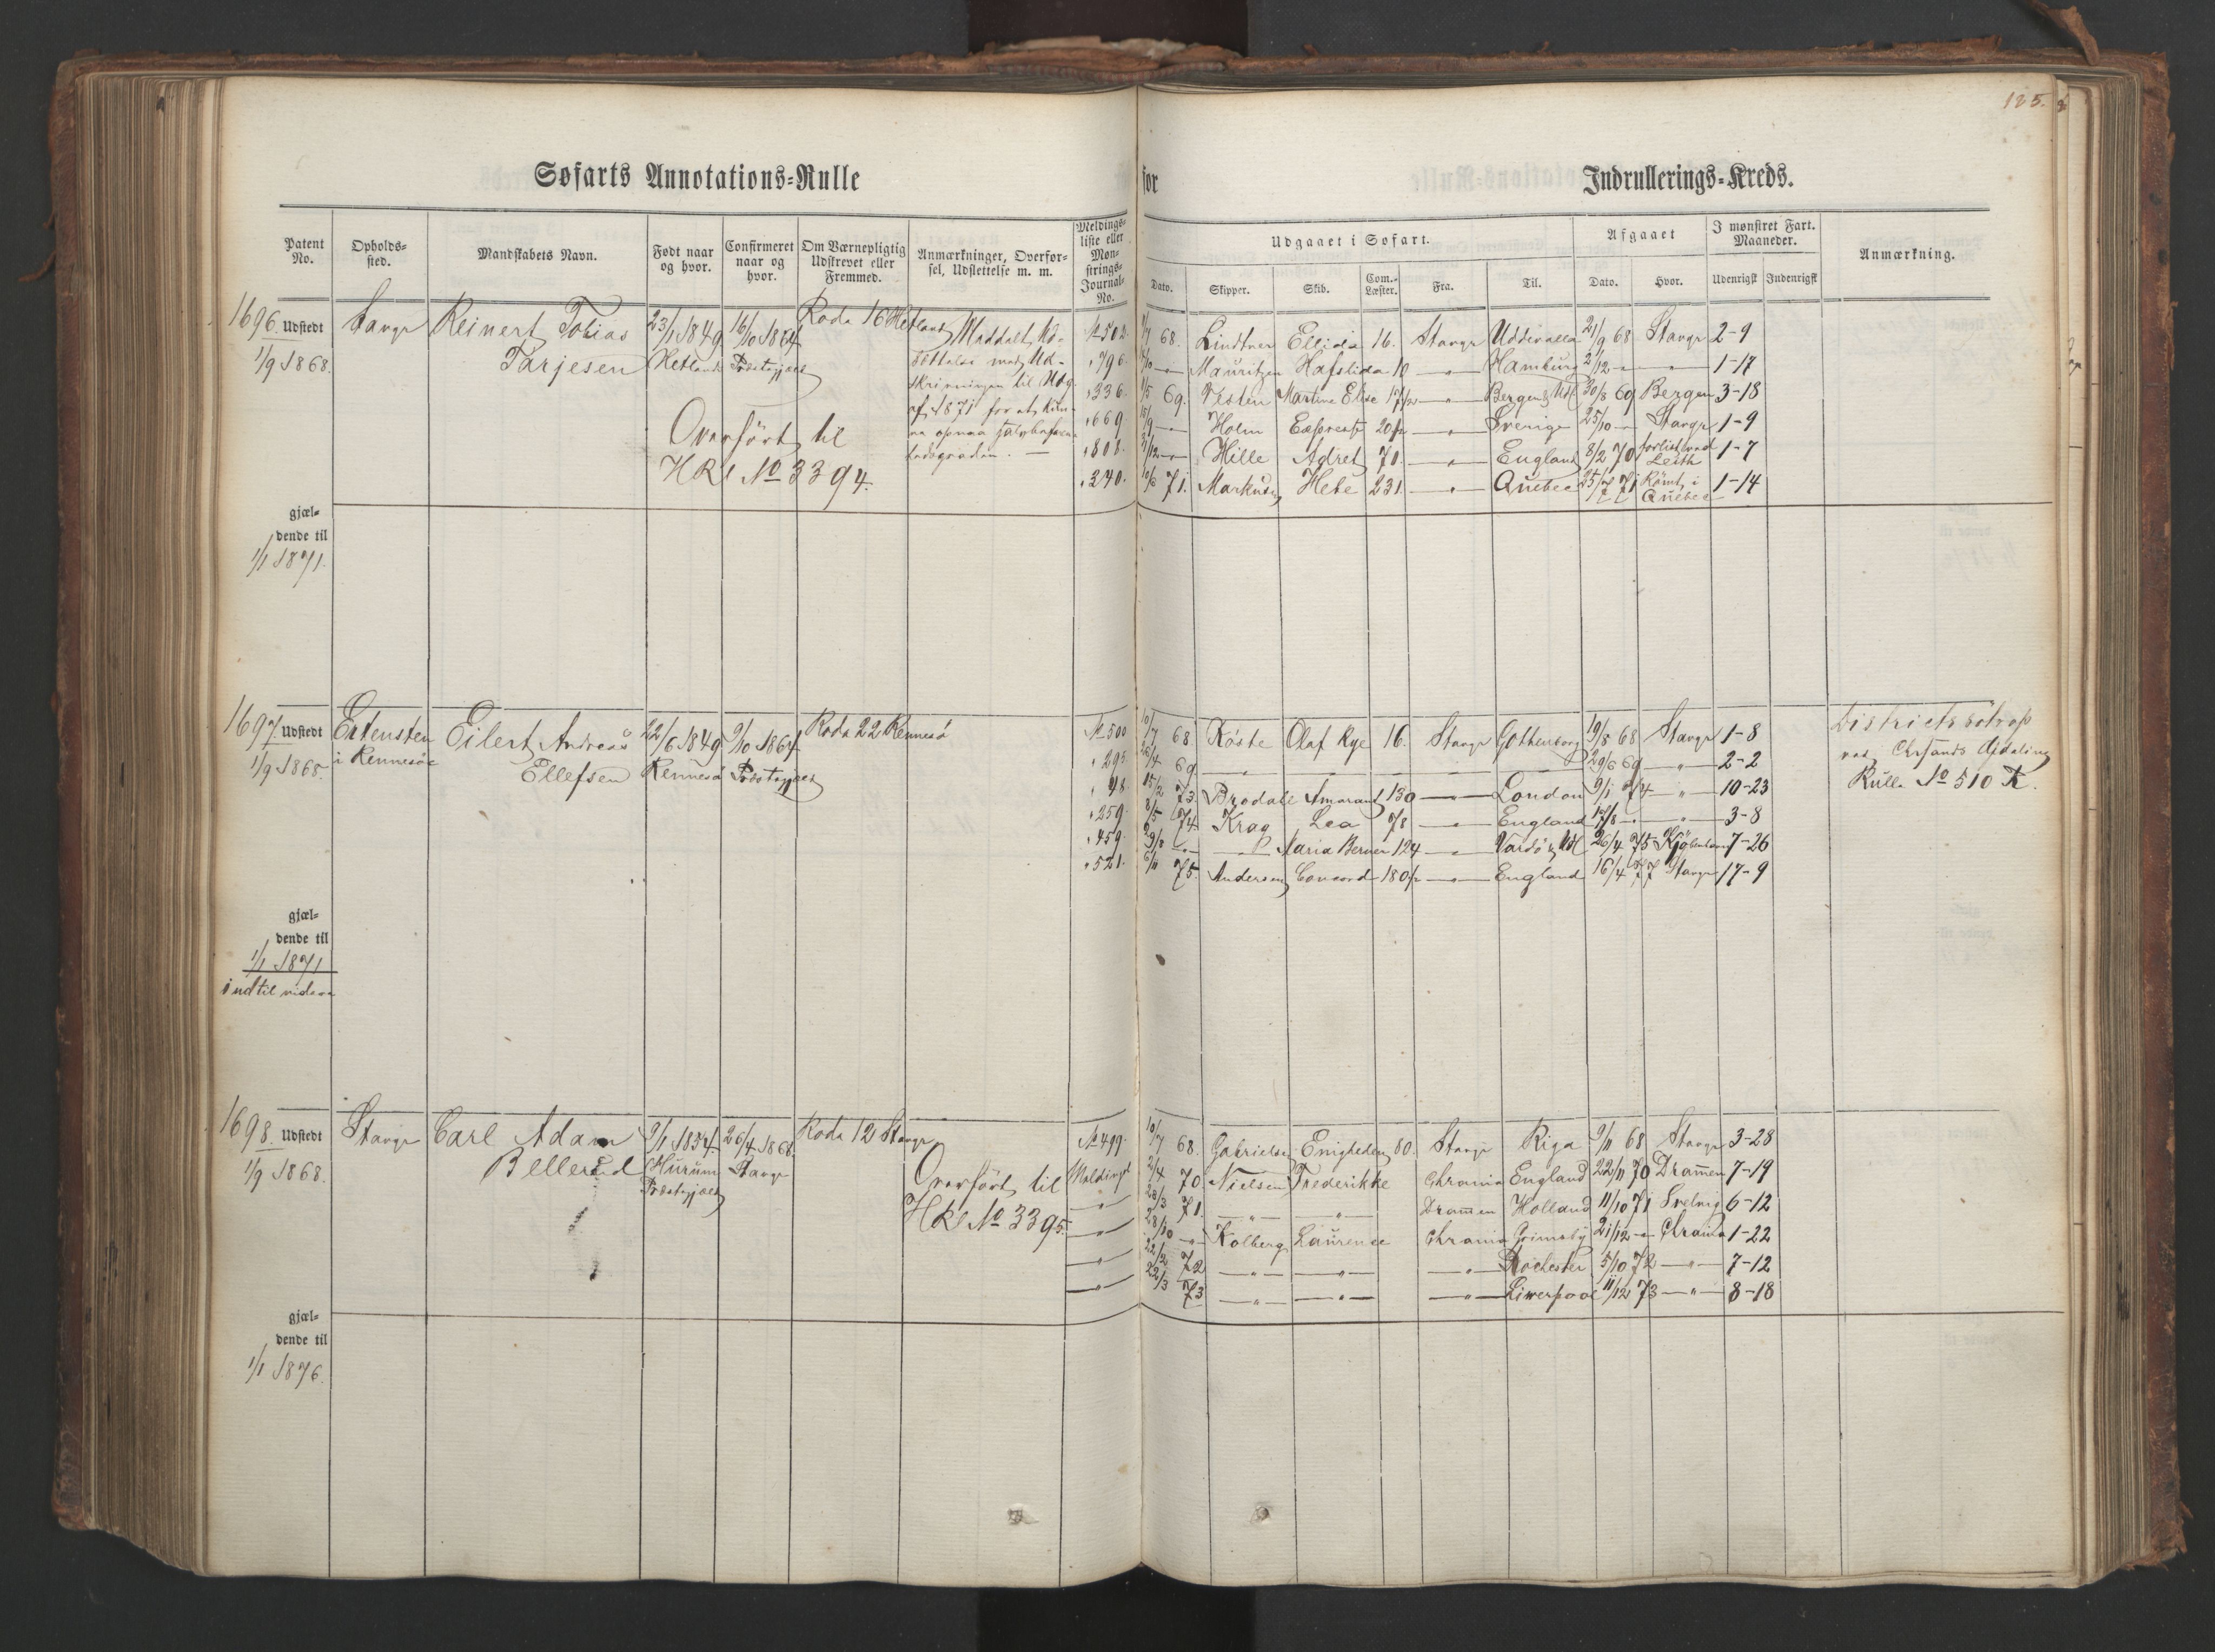 125.
Søfarts Annotations=Rulle for Indrullerings=Kreds.
Patent No.
Opholds=sted.
Mandskabets Navn.
Født naar og hvor.
Confirmeret naar og hvor.
Om Værnepligtig Udskrevet eller Fremmed.
Anmærkninger, Overførsel, Udslettelse m. m.
Meldings=liste eller Mønstrings=Journal=No.
Udgaaet i Søfart.
Dato. Skipper. Skib. Com.=Læster. Fra. Til.
Afgaaet
Dato. Hvor.
I mønstret Fart. Maaneder.
Udenrigsk Indenrigsk
Anmærkning.
1696. Udstedt
1/9 1868.
Stavgr
Reinert Tobias
Tarjesen
23/1 1849
Hetland
16/10 1864
Præstegjæld
Rode 16 Hetland
Overført til
HRl No 3394.
No 502. 68. Lindtner Ellida 16. Stavgr Uddevalla 21/9 68 Stavgr 2-9
" 796. Mauritzen Hafslida 10 " Hamburg 2/12 " " 1-17
" 336. 69. Vesten Martine Elise 17 " Bergen & Udl 30/8 69 Bergen 3-18
" 669 Holm Express 20 " Sverige 25/10 " Stavgr 1-9
" 808. Hille Adret 70. " England 8/2 70 forlist ved Leith 1-7
" 340. 10/6 71. Markusen Hebe 231. " Quebec 25/7 71 Römt i Quebec 1-14
gjæl=
dende til
1/1 1871.
1697. Udstedt
1/9 1868.
i Rennesöe
Eilert Andreas
Ellefsen
22/6 1849
Rennesö
9/10 1864
Præstegjæld
Rode 22 Rennesö
No 500 10/7 68 Röste Olaf Rye 16. Stavgr Gothenborg 19/8 68 Stavgr 1-8
" 295 26/4 69 " " 29/6 69 " 2-2
" 48. 15/2 73. Brodall Amarant 130 " London 9/1 74 " 10-23
" 259. 8/5 74 Krag Lea 78 " England 17/8 " " 3-8
" 459. 29/8 " " Maria Berner 124 " Vardö & Udl 26/4 75 Kjöbenhavn 7-26
" 521. 6/11 75. Andersen Concord 180 " England 16/4 77 Stavgr 17-9
ved Chrsands Afdeling
Rulle No 510 K.
gjæl=
dende til
1/1 1871
indtil videre
1698. Udstedt
1/9 1868.
Stavgr
Carl Adam
Bellerud
9/1 1854.
Hurum
Præstegjæld
26/4 1868.
Stavgr
Rode 12 Stavgr
Overført til
HRl No 3395.
No 499. 10/7 68. Gabrielsen Enigheden 80. Stavgr Riga 9/11 68 Stavgr 3-28
Meldingsl 2/4 70 Nielsen Frederikke Chrania England 22/11 70 Drammen 7-19
" 28/3 71. " " Drammen Holland 11/10 71 Svelvig 6-12
" 28/10 " Kolberg Laurense Chrania Grimsby 21/12 " Chrania 1-22
" 22/2 72 " " " Rochester 5/10 72 " 7-12
" 22/3 73 " " " Liverpool 11/12 73 " 8-18
gjæl=
dende til
1/1 1876.